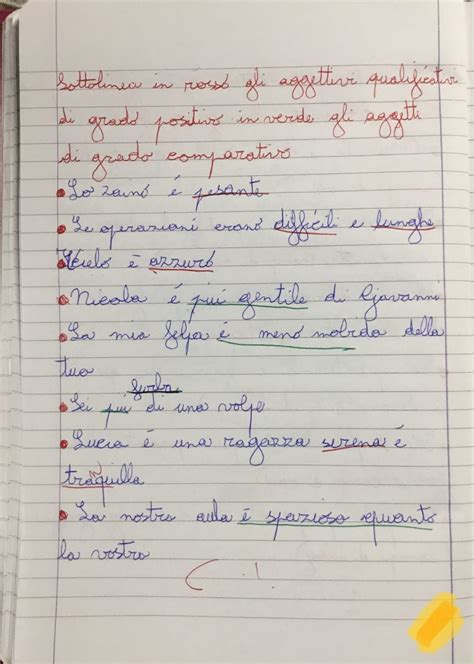 Sottolinea in rosso gli aggettivi qualificativi
di grado positivo in verde gli aggetti
di grado comparativo
• Lo zaino é pesante
• Le operazioni erano difficili e lunghe
Il cielo è azzuro
• Nicola é piú gentile di Giavanni
• La mia felpa é meno mobida della
tua
furba
• Sei piú di una volpe
• Lucia é una ragazza serena é
traquilla
n
• La nostra aula é spaziosa quanto
la vostra